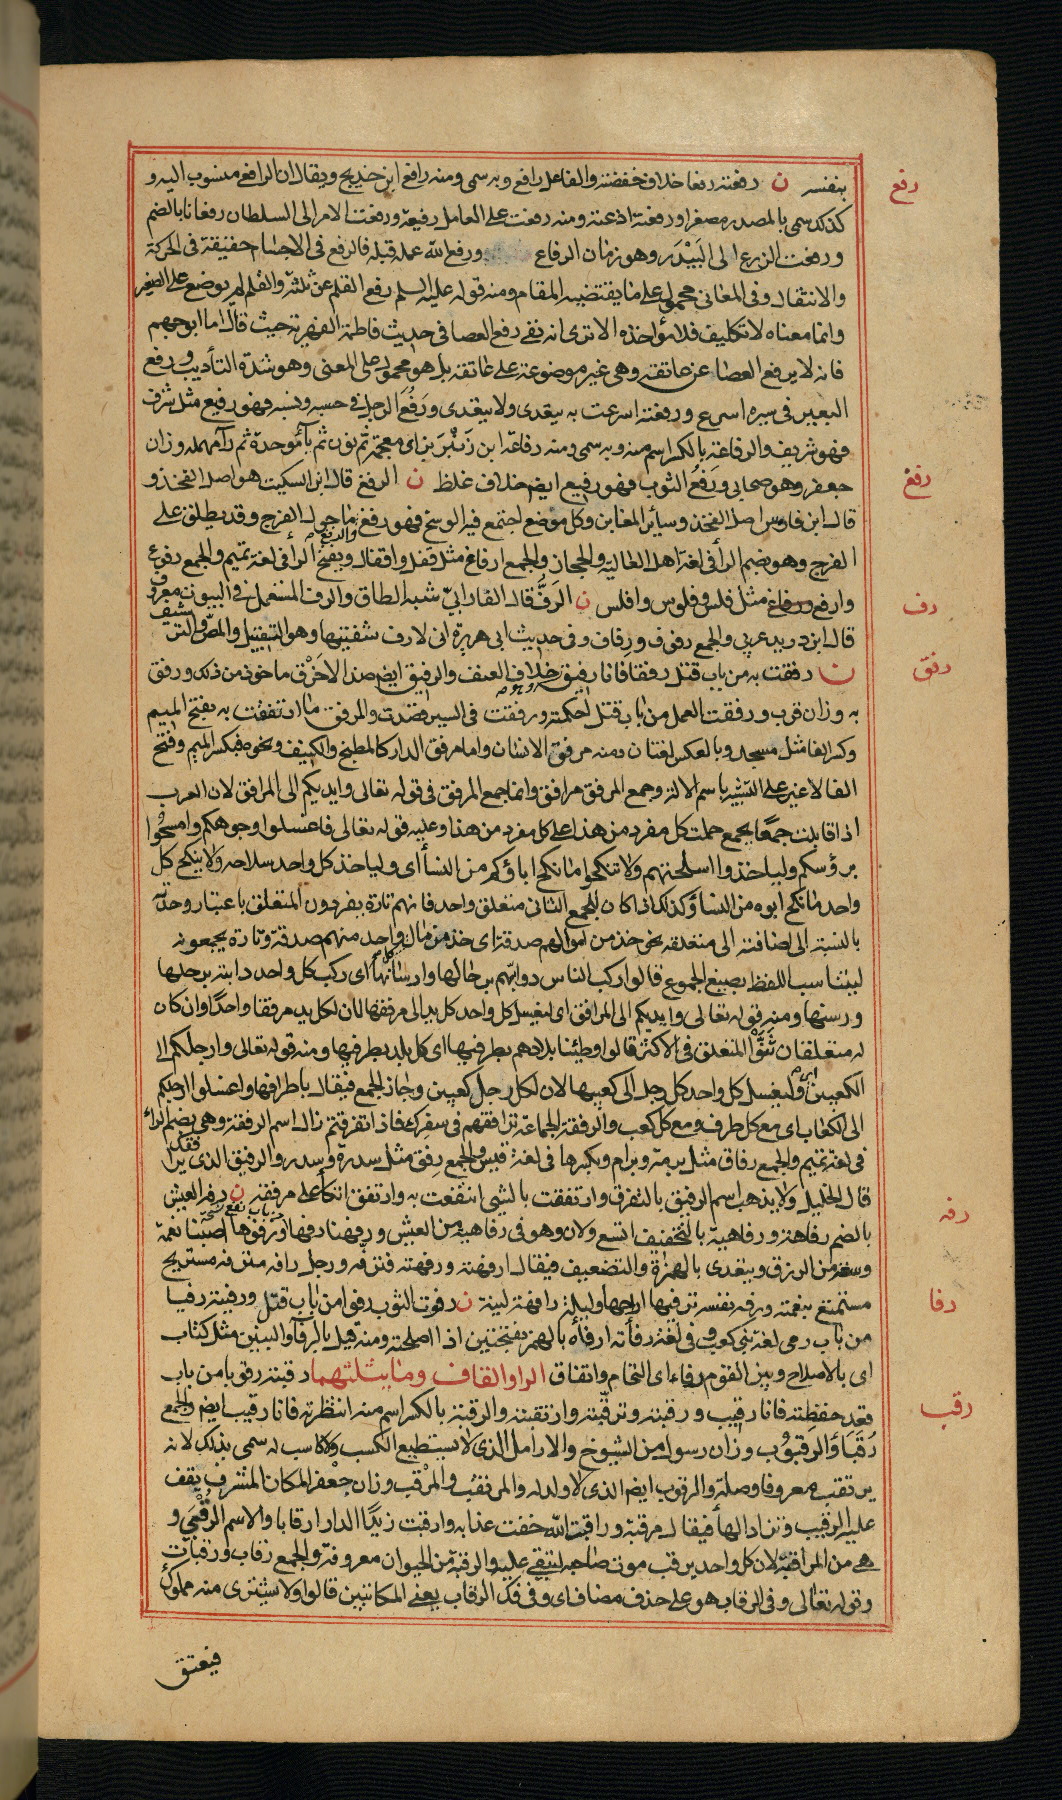 بنفسه ن رفعته رفعا خلاف خفضته والفاعل رافع وبه سمي ومنه رافع ابن خديج ويقال ان الرافعي منسوب اليه و
رفع
كذلك سمي بالمصدر مصغرا ورفعته اذعته ومنه رفعت على العامل رفيعة ورفعت الامر الى السلطان رفعانا بالضم
ورفعت الزرع الى البَيْدَر وهو زمان الرفاع ورفع الله عمله قبله فالرفع في الاجسام حقيقة في الحركة
والانتقال وفي المعاني محمول على ما يقتضيه المقام ومنه قوله عليه السلم رفع القلم عن ثلثة والقلم لم يوضع على الصغير
وانما معناه لا تكليف فلا مؤاخذه الا ترى انه نفى رفع العصا في حديث فاطمة الفهرية حيث قال اما ابو جهم
فانه لا يرفع العصا عن عاتقه وهي غير موضوعة على عاتقه بل هو محمول على المعنى وهو شدة التأديب ورفع
البعير في سيره اسرع ورفعته اسرعت به يتعدى ولا يتعدى ورَفُعَ الرجل في حسبه ونسبه فهو رفيع مثل شرف
فهو شريف والرفاعة بالكسر اسم منه وبه سمي ومنه رفاعة ابن زَنْبَر بزاي معجمة ثم نون ثم بآ موحدة ثم رآ مهمله وزان
جعفر وهو صحابي ورَفُعَ الثوب فهو رفيع ايضم خلاف غلظ ن الرفغ قال ابن السكيت هو اصل الفخذ و
رفغ
قال ابن فارس اصل الفخذ وسائر المغابن وكل موضع اجتمع فيه الوسخ فهو رفغ ما حول الفرج وقد يطلق على
الفرج وهو بضم الرأ في لغة اهل العالية والحجاز والجمع ارفاغ مثل قفل واقفال وبفتح الرأ في لغة تميم والجمع رفوغ
وارفغ ورفاغ مثل فلس وفلوس وافلس ن الرَفُّ قال الفارابي شبه الطاق والرف المستعمل في البيوت معروف
رف
قال ابن دريد عربي والجمع رفوف ورفاف وفي حديث ابي هريرة اني لارف شفتيها وهو التقبيل والمص والترشيف
ن رفقت به من باب قتل رفقا فانا رفيق خلاف العنف والرفيق ايضم ضد الاخرق ماخوذ من ذلك ورفق
رفق
به وزان قرب ورفقت العمل من باب قتل احكمته ورفقت في السير قصدت والمرفق ما ارتفقت به بفتح الميم
وكسر الفا مثل مسجد وبالعكس لغتان ومنه مرفق الانسان واما مرفق الدار كالمطبخ والكنيف ونحوه فبكسر الميم وفتح
الفا لا غير على التشبيه باسم الالة وجمع المرفق مرافق وانما جمع المرفق في قوله تعالى وايديكم الى المرافق لان العرب
اذا قابلت جمعًا بجمع حملت كل مفرد من هذا على كل مفرد من هذا وعليه قوله تعالى فاغسلوا وجوهكم وامسحوا
برؤسكم وليا خذوا اسلحتهم ولا تنكحوا ما نكح اباؤكم من النسأ اى وليا خذ كل واحد سلاحه ولا ينكح كل
واحد ما نكح ابوه من النسأ وكذلك اذا كان للجمع الثاني متعلق واحد فانهم تارة يفردون المتعلق باعتبار وحدته
بالنسبة الى اضافته الى متعلقه نحو خذ من اموالهم صدقة اى خذ من مال كل واحد منهم صدقة وتارة يجمعونه
ليتناسب اللفظ بصيغ الجموع قالوا ركب الناس دوابهم برحالها وارسانها اى ركب كل واحد دابته برحلها
ورسنها ومنه قوله تعالى وايديكم الى المرافق اى ليغسل كل واحد كل يد الى مرفقها لان لكل يد مرفقا واحدًا وان كان
له متعلقان ثَنَّوْا المتعلق في الاكثر قالوا وطئنا بلادهم بطرفيها اى كل بلد بطرفيها ومنه قوله تعالى وارجلكم الى
الكعبين اى وليغسل كل واحد كل رجل الى كعبيها لان لكل رجل كعبين وجاز الجمع فيقال باطرافها واغسلوا ارجلكم
الى الكعاب اى مع كل طرف ومع كل كعب والرفقة الجماعة ترافقهم في سفرك فاذا تفرقتم زال اسم الرفقة وهي بضم الراء
في لغة تميم والجمع رفاق مثل برمة وبرام وبكسرها في لغة قيس والجمع رفق مثل سدرة وسدر والرفيق الذي يرافقك
قال الخليل ولا يذهب اسم الرفيق بالتفرق وارتفقت بالشي انتفعت به وارتفق اتكأ على مرفقه ن رفه العيش
رفه
بالضم رفاهة ورفاهية بالتخفيف اتسع ولان وهو في رفاهية من العيش ورفهنا رفها ورفوها اصبنا نعمة
وسعة من الرزق ويتعدى بالهمزة والتضعيف فيقال ارفهته ورفهته فترفه ورجل رافه مترفه مستريح
مستمتع بنعمة ورفه نفسه ترفيها اراحها وليلة رافهة لينة ن رفوت الثوب رفوا من باب قتل ورفيته رفيا
رفا
من باب رمى لغة بني كعب وفي لغة رفأته ارفأه بالهمز بفتحتين اذا اصلحته ومنه قيل بالرفآ والبنين مثل كتاب
اى بالاصلاح وبين القوم رفاء اى التحام واتفاق الرا والقاف وما يثلثهما رقبته رقوبا من باب
قعد حفظته فانا رقيب ورقبته وترقبته وارتقبته والرقبة بالكسر اسم منه انتظرته فانا رقيب ايضم والجمع
رقب
رُقَبَآ والرَقُوْب وزان رسول من الشيوخ والارامل الذي لا يستطيع الكسب ولا كاسب له سمي بذلك لانه
يرتقب معروفا وصلة والرقوب ايضم الذي لا ولد له والمرقب والمرْقَب وزان جعفر المكان المشرف يقف
عليه الرقيب وتزاد الهأ فيقال مرقبة وراقبت الله خفت عذابه وارقبت زيدًا الدار ارقابا والاسم الرُقْبَى و
هي من المراقبة لان كل واحد يرقب موت صاحبه لتبقى عليه والرقبة من الحيوان معروفة والجمع رقاب ورقبات
وقوله تعالى وفي الرقاب هو على حذف مضاف اى وفي فك الرقاب يعني المكاتبين قالوا ولا يشترى منه مملوك
فيعتق